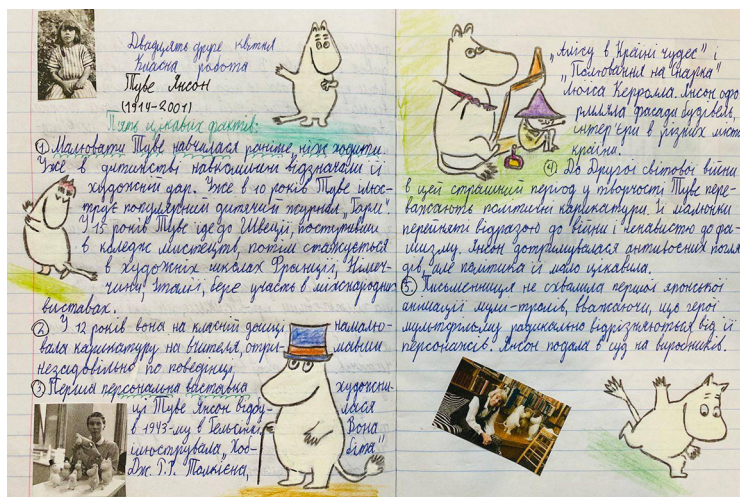 Двадцять друге квітня
Класна робота
Туве Янсон
(1914-2001)
П'ять цікавих фактів:
① Малювати Туве навчилася раніше, ніж ходити.
Уже в дитинстві навколишні відзначали її
художній дар. Уже в 10 років Туве ілюс-
трує популярний дитячий журнал „Гарм".
У 15 років Туве їде до Швеції, поступивши
в коледж мистецтв, потім стажується
в художніх школах Франції, Німеч-
чини, Італії, бере участь в міжнародних
виставках.
② У 12 років вона на класній дошці намалю-
вала карикатуру на вчителя, отри- мавши
незадовільно по поведінці.
③ Перша персональна виставка художни-
ці Туве Янсон відбу- лася
в 1943-му в Гельсінкі. Вона
ілюструвала „Хоб- біта"
Дж. Г.Р. Толкієна,
„Алісу в Країні чудес" і
„Полювання на Снарка"
Люїса Керролла. Янсон офо
рмляла фасади будівель,
інтер'єри в різних міста
країни.
④ До Другої світової війни
в цей страшний період у творчості Туве пере-
важають політичні карикатури. Її малюнки
перейняті відразою до війни і ненавистю до фа-
шизму. Янсон дотримувалася антивоєнних погля
дів, але політика її мало цікавила.
⑤ Письменниця не схвалила першої японської
анімації мумі-тролів, вважаючи, що герої
мультфільму радикально відрізняються від її
персонажів. Янсон подала в суд на виробників.